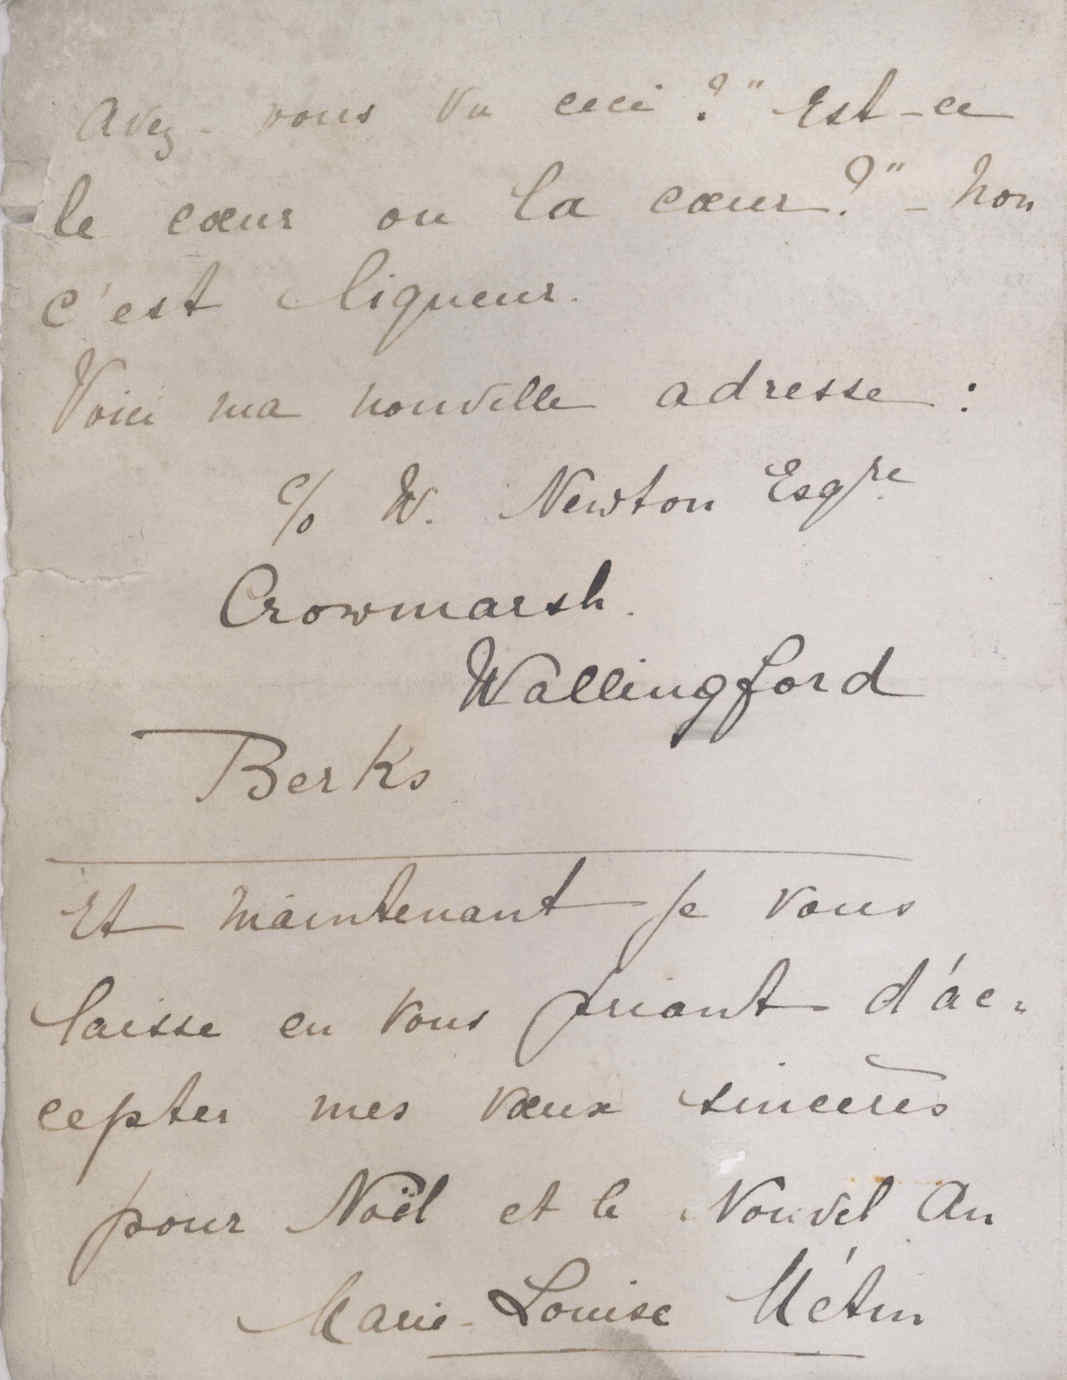 Avez-vous vu ceci ?" Est-ce
le cœur ou la cœur ?" - Non
c'est liqueur.
Voici ma nouvelle adresse :
c/o W. Newton Esqre
Crowmarsh.
Wallingford
Berks
Et maintenant je vous
laisse en vous priant d'ac-
cepter mes vœux sincères
pour Noël et le Nouvel An
Marie-Louise Métin